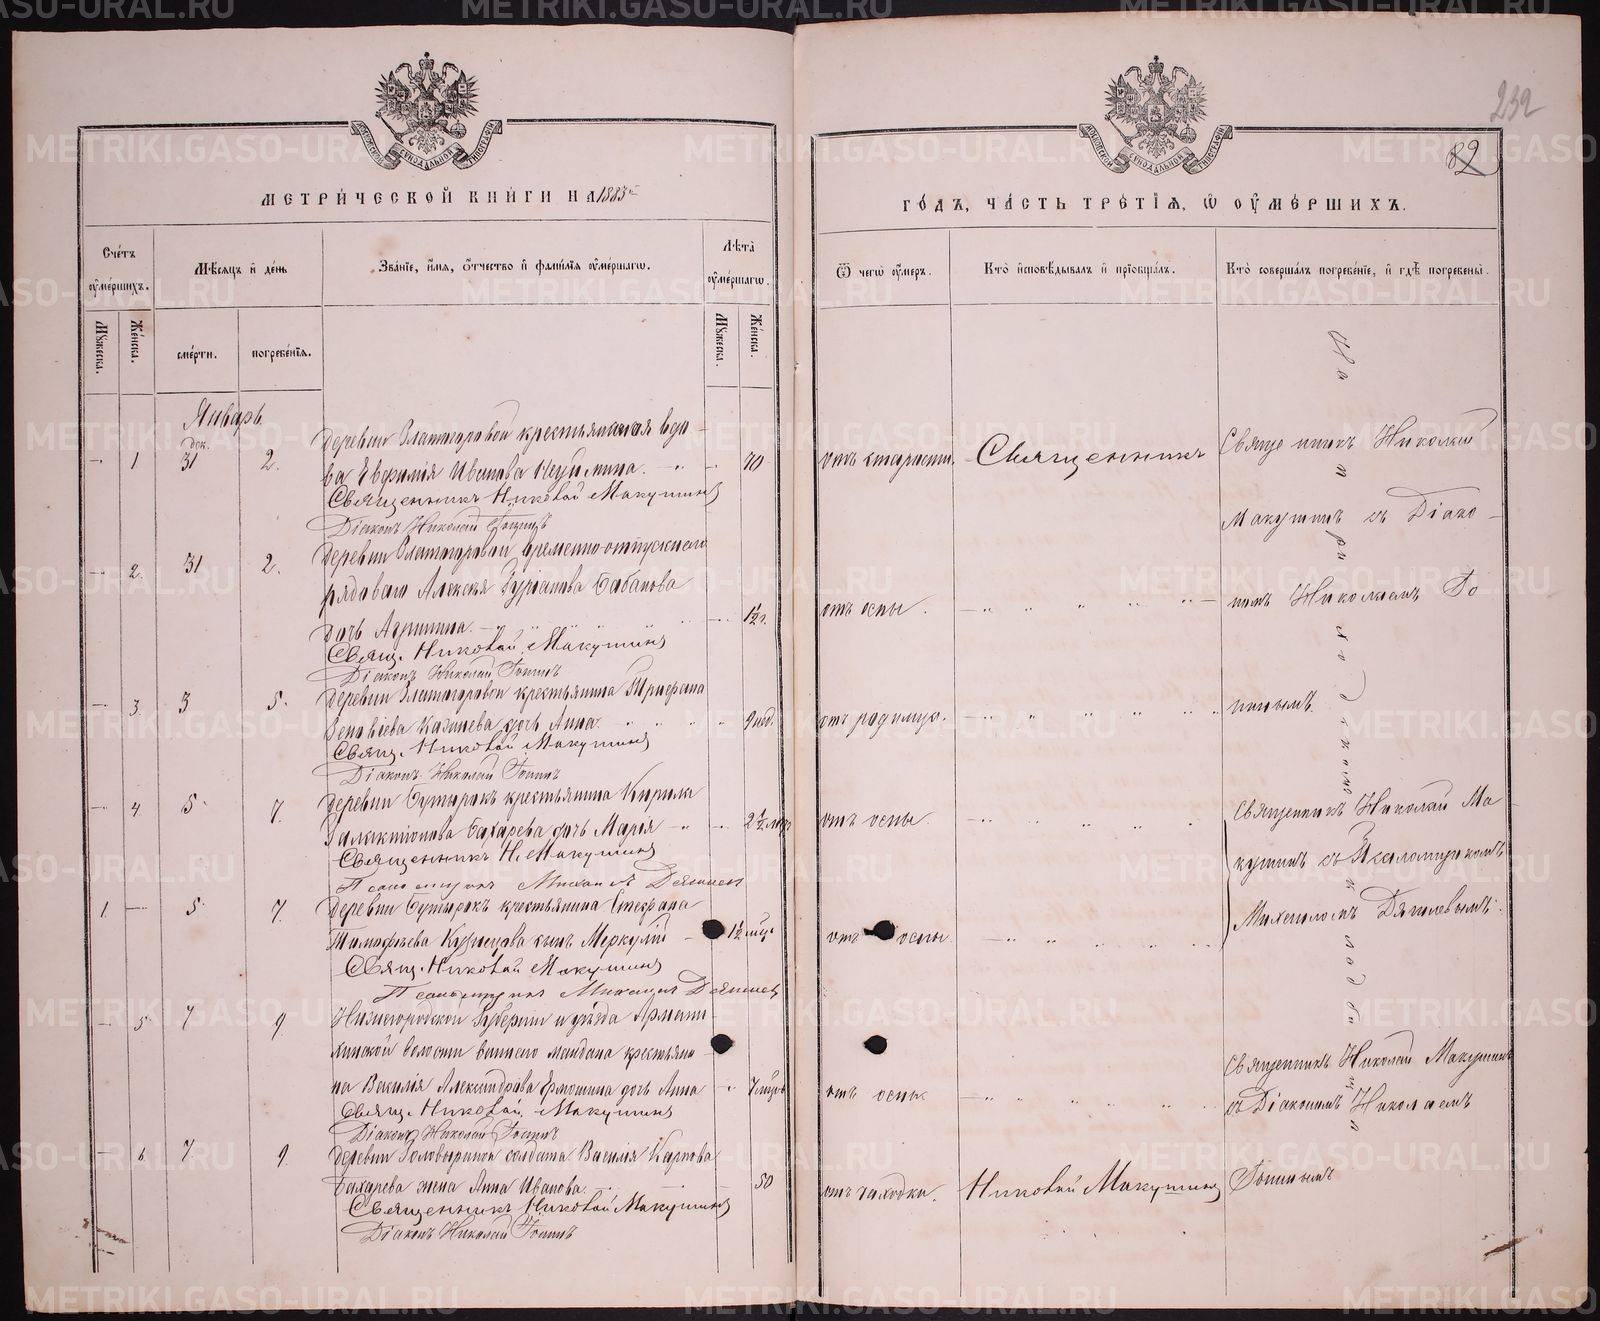 МЕТРИЧЕСКОЙ КНИГИ НА 1883й
Счетъ умершихъ.
Мѣсяцъ и день
Званіе, имя, отчество и фамилія умершагѡ.
Лѣта умершагѡ.
Мужеска.
Женска.
смерти.
погребенія.
Мужеска.
Женска.
Январь
дек.
1 31 2. Деревни Златогоровой крестьянская вдо
ва Евфимія Иванова Неуймина. 70
Священникъ Николай Макушинъ
Діаконъ Николай
2. 31 2. Деревни Златогоровой временно-отпускнаго
рядоваго Алексѣя Бабанова
дочь 1½ г.
Свящ. Николай Макушинъ
Діаконъ Николай
3. 3 5. Деревни Златогоровой крестьянина Трифона
Зеновіева дочь Анна 9 нед.
Свящ. Николай Макушинъ
Діаконъ Николай
4. 5 7. Деревни Бутырокъ крестьянина Кирила
Галактіонова Бахарева дочь Марія 2½
Священникъ Н. Макушинъ
Псаломщикъ Михаилъ
1. 5 7. Деревни Бутырокъ крестьянина Стефана
Тимофѣева Кузнецова сынъ Меркурій 1½
Свящ. Николай Макушинъ
Псаломщикъ Михаилъ
5 7 9 Нижегородской Губерніи и уѣзда
волости майдана крестьяни
на Василія Александрова Ермошина дочь Анна 7
Свящ. Николай Макушинъ
Діаконъ Николай
6 7 9. Деревни Головыриной солдата Василія Карпова
Бахарева жена Анна Иванова. 50
Священникъ Николай Макушинъ
Діаконъ Николай
232
82
ГОДЪ, ЧАСТЬ ТРЕТІЯ, Ѡ УМЕРШИХЪ.
Ѿ чегѡ умеръ.
Кто исповѣдывалъ и пріобщалъ.
Кто совершалъ погребеніе, и гдѣ погребены.
отъ старости.
отъ оспы.
отъ родимца.
отъ оспы.
отъ оспы.
отъ оспы.
отъ чахотки.
Священникъ
Николай Макушинъ
Священникъ Николай
Макушинъ съ Діако
номъ Николаемъ
Священникъ Николай Ма
кушинъ съ Псаломщикомъ
Михаиломъ
Священникъ Николай Макушинъ
съ Діакономъ Николаемъ
На приходскомъ кладбищѣ
METRIKI.GASO-URAL.RU